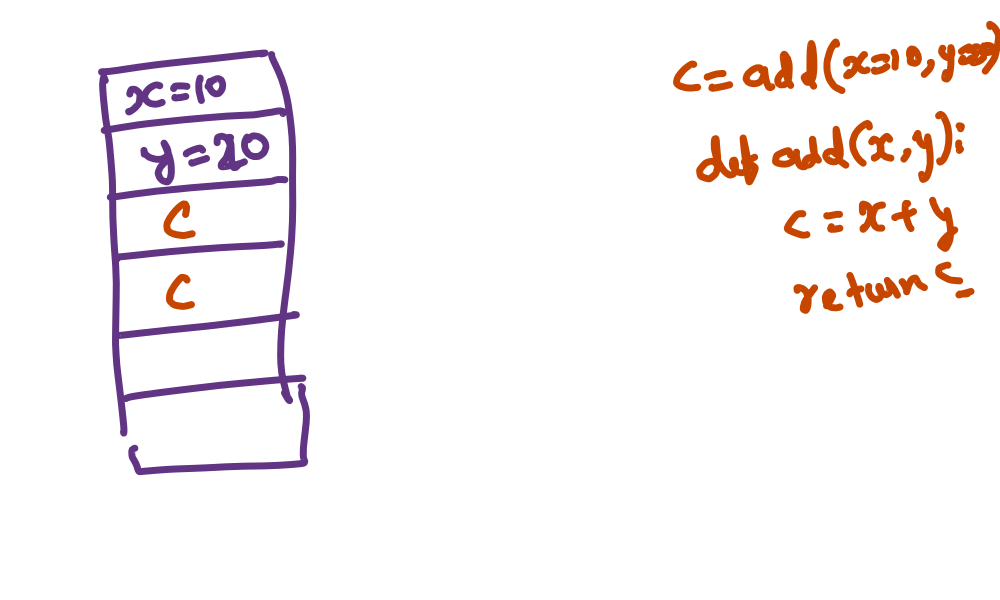 x=10
y=20
C
C
C= add(x=10,y=20)
def add(x,y):
c = x+y
return c